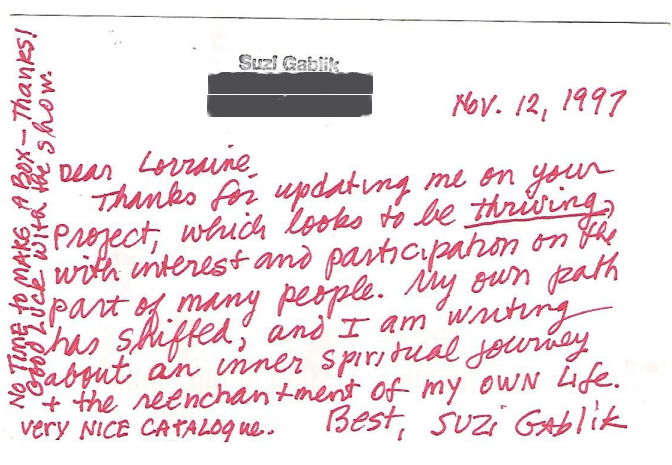 Suzi Gablik
Nov. 12, 1997
Dear Lorraine,
Thanks for updating me on your
project, which looks to be thriving,
with interest and participation on the
part of many people. My own path
has shifted, and I am writing
about an inner spiritual journey
+ the reenchantment of my own life.
Best, Suzi Gablik
very NICE CATALOGue.
No Time to MAKE A BOX — Thanks!
Good Luck with the show.